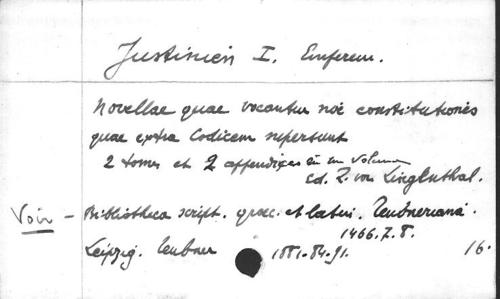 Justinien I. Empereur.
Novellae quae vocantur sive constitutiones
quae extra Codicem supersunt
2 tomes et 2 appendices en un volume
Ed. Z. von Lingenthal.
Voir - Bibliotheca script. graec. et latin. Teubneriana.
1466.7.8.
Leipzig. Teubner 1881.84.91. 16.